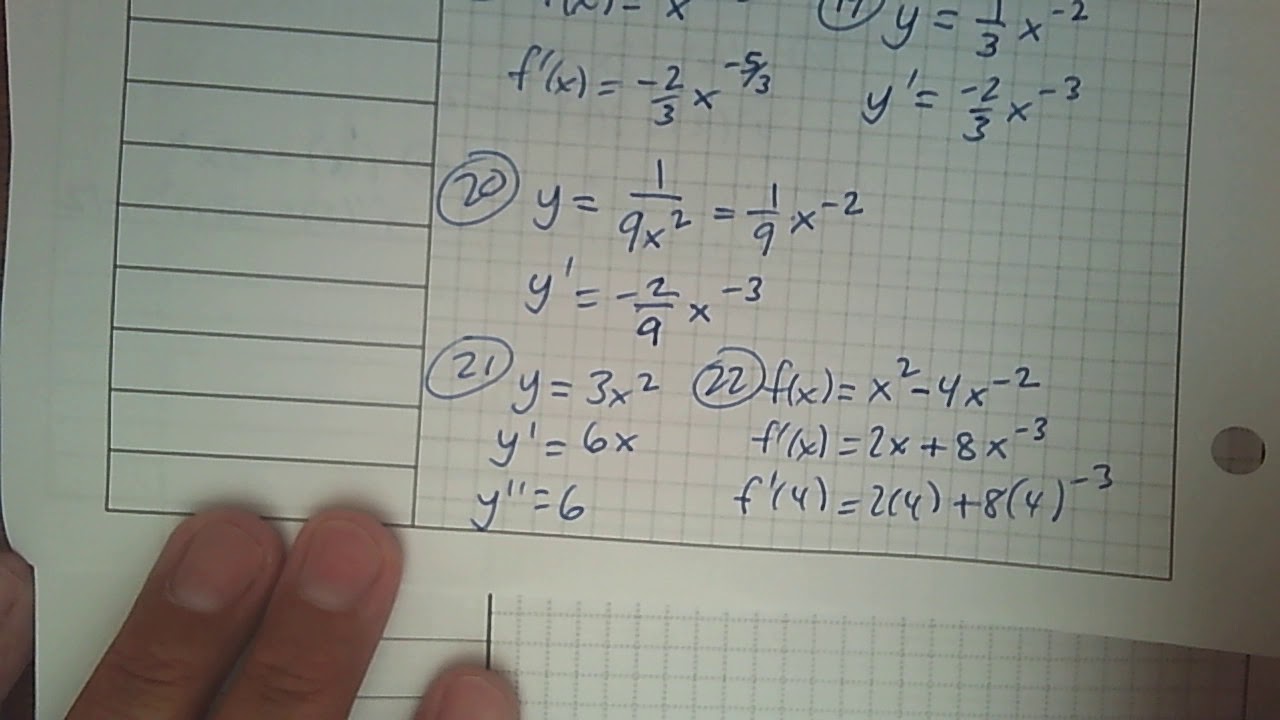 y = 1/3 x^-2
f'(x) = -2/3 x^-5/3
y' = -2/3 x^-3
20 y = 1/9x^2 = 1/9 x^-2
y' = -2/9 x^-3
21 y = 3x^2
y' = 6x
y'' = 6
22 f(x) = x^2 - 4x^-2
f'(x) = 2x + 8x^-3
f'(4) = 2(4) + 8(4)^-3